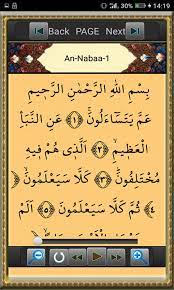 14:19
Back PAGE Next
An-Nabaa-1
بِسْمِ اللَّهِ الرَّحْمَٰنِ الرَّحِيمِ
عَمَّ يَتَسَاءَلُونَ ﴿١﴾ عَنِ النَّبَإِ
الْعَظِيمِ ﴿٢﴾ الَّذِي هُمْ فِيهِ
مُخْتَلِفُونَ ﴿٣﴾ كَلَّا سَيَعْلَمُونَ
﴿٤﴾ ثُمَّ كَلَّا سَيَعْلَمُونَ ﴿٥﴾ أَلَمْ